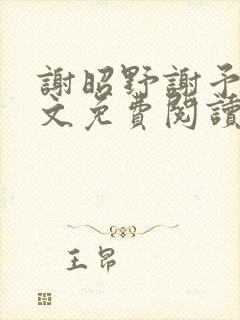 謝昭野謝予
文免費閱讀
王昂